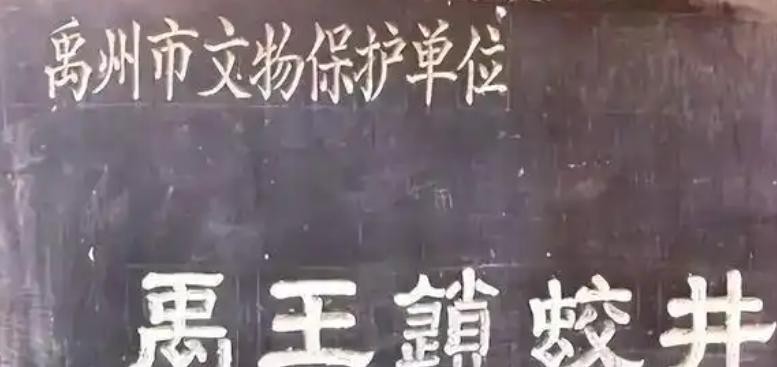 禹州市文物保护单位
禹王鎖蛟井